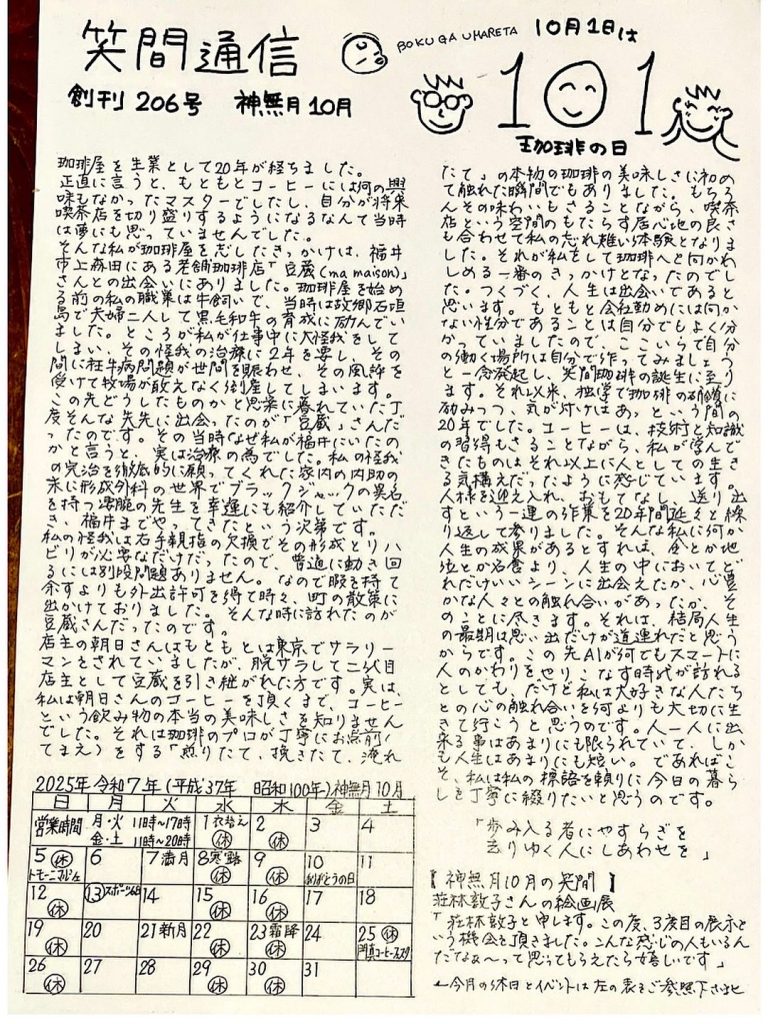 笑間通信
BOKU GA UMARETA 10月1日は
101
珈琲の日
創刊 206号 神無月10月
珈琲屋を生業として20年が経ちました。
正直に言うと、もともとコーヒーには何の興
味もなかったマスターでしたし、自分が将来
喫茶店を切り盛りするようになるなんて当時
は夢にも思っていませんでした。
そんな私が珈琲屋を志したきっかけは、福井
市上森田にある老舗珈琲店「豆蔵(ma maison)」
さんとの出会いにありました。珈琲屋を始め
る前の私の職業は牛飼いで、当時は故郷石垣
島で夫婦二人して黒毛和牛の育成に励んでい
ました。ところが私が仕事中に大怪我をして
しまい、その怪我の治療に2年を要し、その
間に狂牛病問題が世間を賑わせ、その風評を
受けて牧場が敢えなく倒産してしまいます。
この先どうしたものかと思案に暮れていた丁
度そんな矢先に出会ったのが「豆蔵」さんだ
ったのです。その当時なぜ私が福井にいたの
かと言うと、実は治療の為でした。私の怪我
の完治を徹底的に願ってくれた家内の内助の
末に形成外科の世界でブラックジャックの異名
を持つ凄腕の先生を幸運にも紹介していただ
き、福井までやってきたという次第です。
私の怪我は右手親指の欠損でその形成とリハ
ビリが必要なだけだったので、普通に動き回
るには別段問題ありません。なので暇を持て
余すよりも外出許可を得て時々、町の散策に
出かけておりました。そんな時に訪れたのが
豆蔵さんだったのです。
店主の朝日さんはもともとは東京でサラリー
マンをされていましたが、脱サラして二代目
店主として豆蔵を引き継がれた方です。実は、
私は朝日さんのコーヒーを頂くまで、コーヒー
という飲み物の本当の美味しさを知りません
でした。それは珈琲のプロが丁寧にお点前(
てまえ)をする「煎りたて、挽きたて、淹れ
たて」の本物の珈琲の美味しさに初め
て触れた瞬間でもありました。もちろ
んその味わいもさることながら、喫茶
店という空間のもたらす居心地の良さ
も合わせて私の忘れ難い体験となりま
した。それが私をして珈琲へと向かわ
しめる一番のきっかけとなったのでし
た。つくづく、人生は出会いであると
思います。もともと会社勤めには向か
ない性分であることは自分でもよく分
かっていましたので、ここいらで自分
の働く場所は自分で作ってみましょう
と一念発起し、笑間珈琲の誕生に至り
ます。それ以来、独学で珈琲の研鑽に
励みつつ、気が付けばあっという間の
20年でした。コーヒーは、技術と知識
の習得もさることながら、私が学んで
きたものはそれ以上に人としての生き
る気構えだったように感じています。
人様を迎え入れ、おもてなし、送り出
すという一連の作業を20年間延々と繰
り返して参りました。そんな私に何か
人生の成果があるとすれば、金とか地
位とか名誉より、人生の中においてど
れだけいいシーンに出会えたか、心豊
かな人々との触れ合いがあったか、そ
のことに尽きます。それは、結局人生
の最期は思い出だけが道連れだと思う
からです。この先AIが何でもスマートに
人のかわりをせりこなす時代が訪れる
としても、だけど私は大好きな人たち
との心の触れ合いを何よりも大切に生
きて行こうと思うのです。人一人に出
来る事はあまりにも限られていて、しか
も人生はあまりにも短い。であればこ
そ、私は私の標語を頼りに今日の暮ら
しを丁寧に綴りたいと思うのです。
「歩み入る者にやすらぎを
去りゆく人にしあわせを」
【神無月10月の笑間】
荘林敦子さんの絵画展
「荘林敦子と申します。この度、3度目の展示と
いう機会を頂きました。こんな感じの人もいるん
だなぁ～って思ってもらえたら嬉しいです」
←今月の休日とイベントは左の表をご参照下さいませ
2025年 令和7年(平成37年 昭和100年)神無月10月
日 月 火 水 木 金 土
営業時間 月・火 11時～17時 1衣替え 2 3 4
金・土 11時～20時 休 休
5休 6 7満月 8寒露 9 10 11
休 休 ありがとうの日
12 13スポーツの日 14 15 16 17 18
休 休 休
19 20 21新月 22 23霜降 24 25休
休 休 休
26 27 28 29 30 31
休 休 休